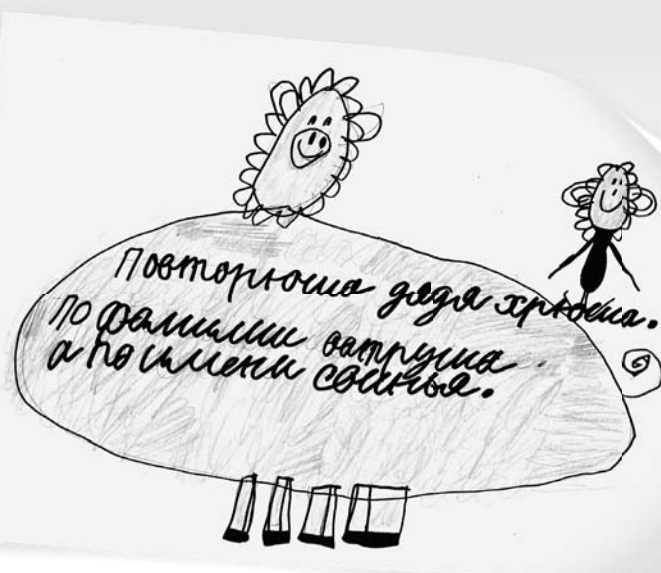 Повторюша дядя хрюша.
По фамилии ватруша
а по имени свинья.